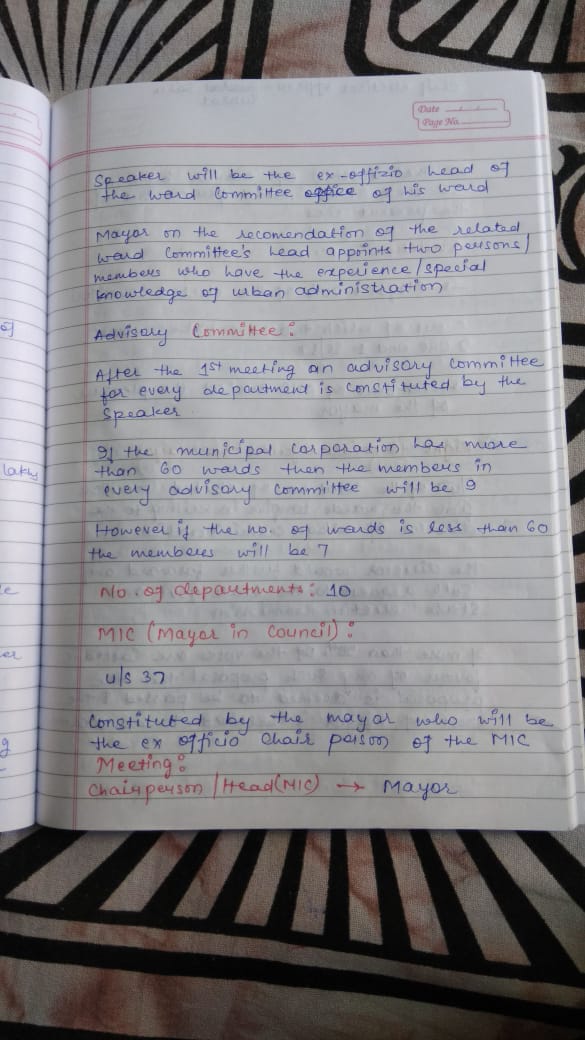 Date
Page No.
Speaker will be the ex-offizio head of
the ward Committee office of his ward
Mayor on the recomendation of the related
ward Committee's head appoints two persons/
members who have the experience/special
knowledge of urban administration
Advisory Committee:
After the 1st meeting an advisory Committee
for every department is constituted by the
Speaker
If the municipal corporation has more
than 60 wards then the members in
every advisory committee will be 9
However if the no. of wards is less than 60
the memberes will be 7
No. of departments: 10
MIC (Mayor in Council):
u/s 37
Constituted by the mayor who will be
the ex officio Chair person of the MIC
Meeting:
Chairperson/Head(MIC) → Mayor
of
lakhs